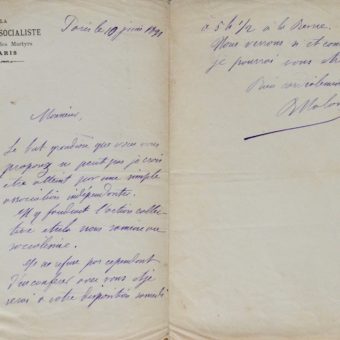 LA
SOCIALISTE
des Martyrs
PARIS
Paris le 19 juin 1891
Monsieur,
Le but grandiose que vous vous
proposez ne peut pas je crois
être atteint par une simple
association indépendantes.
Il y faudrait l'action collec
tive
Je ne refuse pas cependant
d'en conférer avec vous et je
serai à votre disposition samedi
à 5 h 1/2 à la Revue.
Nous verrons si et comment
je pourrai vous
Bien cordialement
B Malon